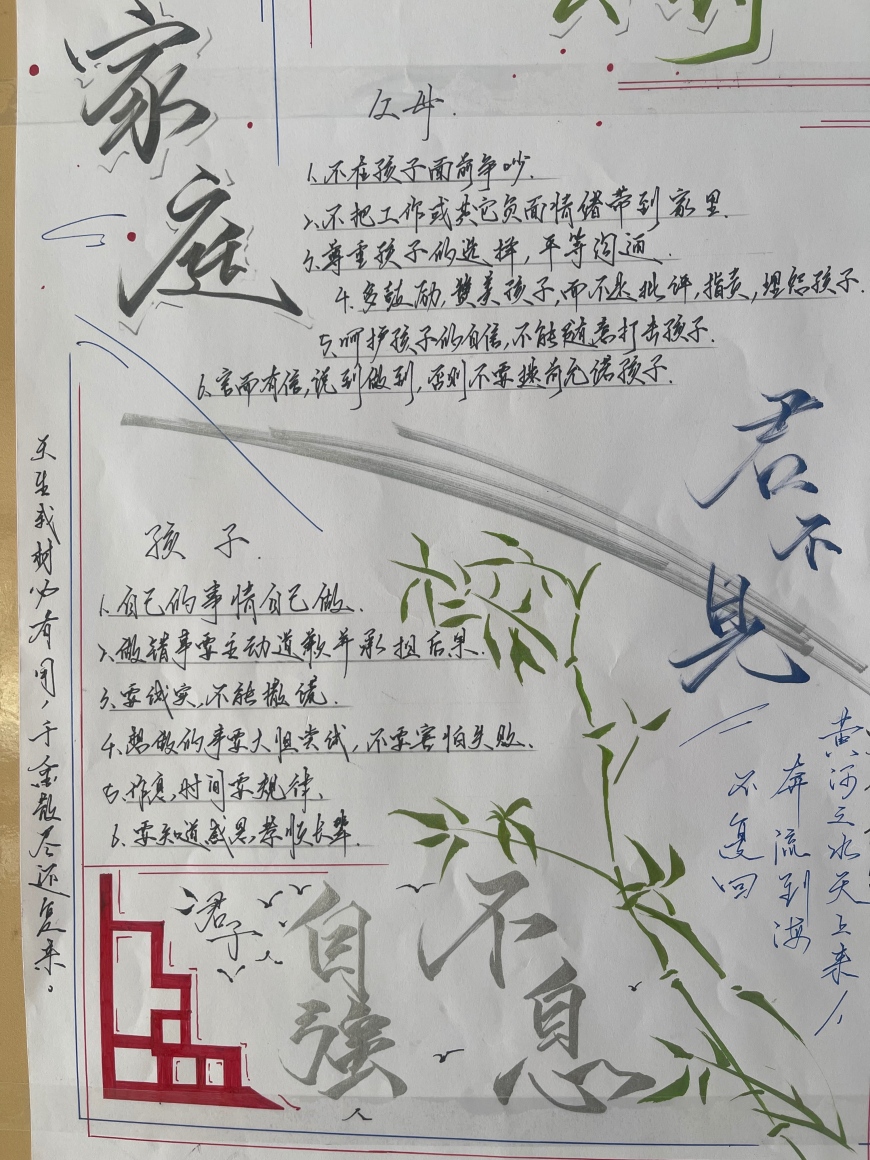 家庭
父母.
1.不在孩子面前争吵.
2.不把工作或其它负面情绪带到家里.
3.尊重孩子的选择,平等沟通.
4.多鼓励,赞美孩子,而不是批评,指责,埋怨孩子.
5.呵护孩子的自信,不能随意打击孩子.
6.言而有信,说到做到,否则不要提前允诺孩子.
君不见
黄河之水天上来,
奔流到海
不复回
天生我材必有用,千金散尽还复来。
孩子.
1.自己的事情自己做.
2.做错事要主动道歉并承担后果.
3.要诚实,不能撒谎.
4.想做的事要大胆尝试,不要害怕失败.
5.作息,时间要规律.
6.要知道感恩孝顺长辈.
君子
自强
不息